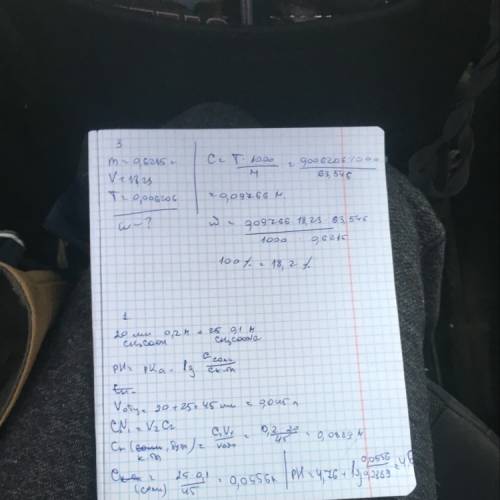 3
m = 0,6215 г
V = 18,23
T = 0,006206
ω - ?
C = T · 1000 / M = 0,006206 · 1000 / 63,546
= 0,09766 н.
ω = 0,09766 · 18,23 · 63,546 / 1000 · 0,6215
100 % = 18,2 %
1
20 мл 0,2 н + 25 0,1 н
CH₃COOH CH₃COONa
pH = pKa - lg Cсоли / Cк-ты
Vобщ = 20 + 25 = 45 мл = 0,045 л
C₁V₁ = V₂C₂
к-та = C₁V₁ / Vобщ = 0,2 · 20 / 45 = 0,0889 н
(соли) = 25 · 0,1 / 45 = 0,0556 н
pH = 4,76 + lg 0,0556 / 0,0889 =